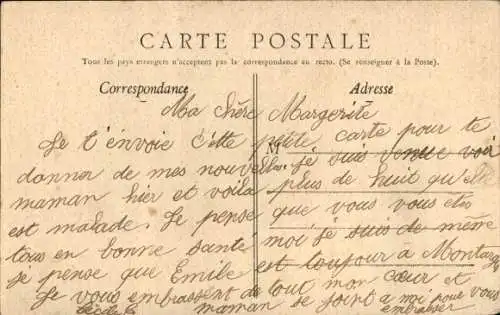 CARTE POSTALE
Tous les pays étrangers n'acceptent pas la correspondance au recto. (Se renseigner à la Poste).
Correspondance
Adresse
M
Ma Chère Margerite
Je t'envoie cette petite carte pour te
donner de mes nouvelles. je suis venue voir
maman hier et voila plus de huit qu'elle
est malade. Je pense que vous vous êtes
tous en bonne santé moi je suis de même
je pense que Emile est toujour a Montarg
Je vous embrassent de tout mon cœur et
maman se joint a moi pour vous
embrasser